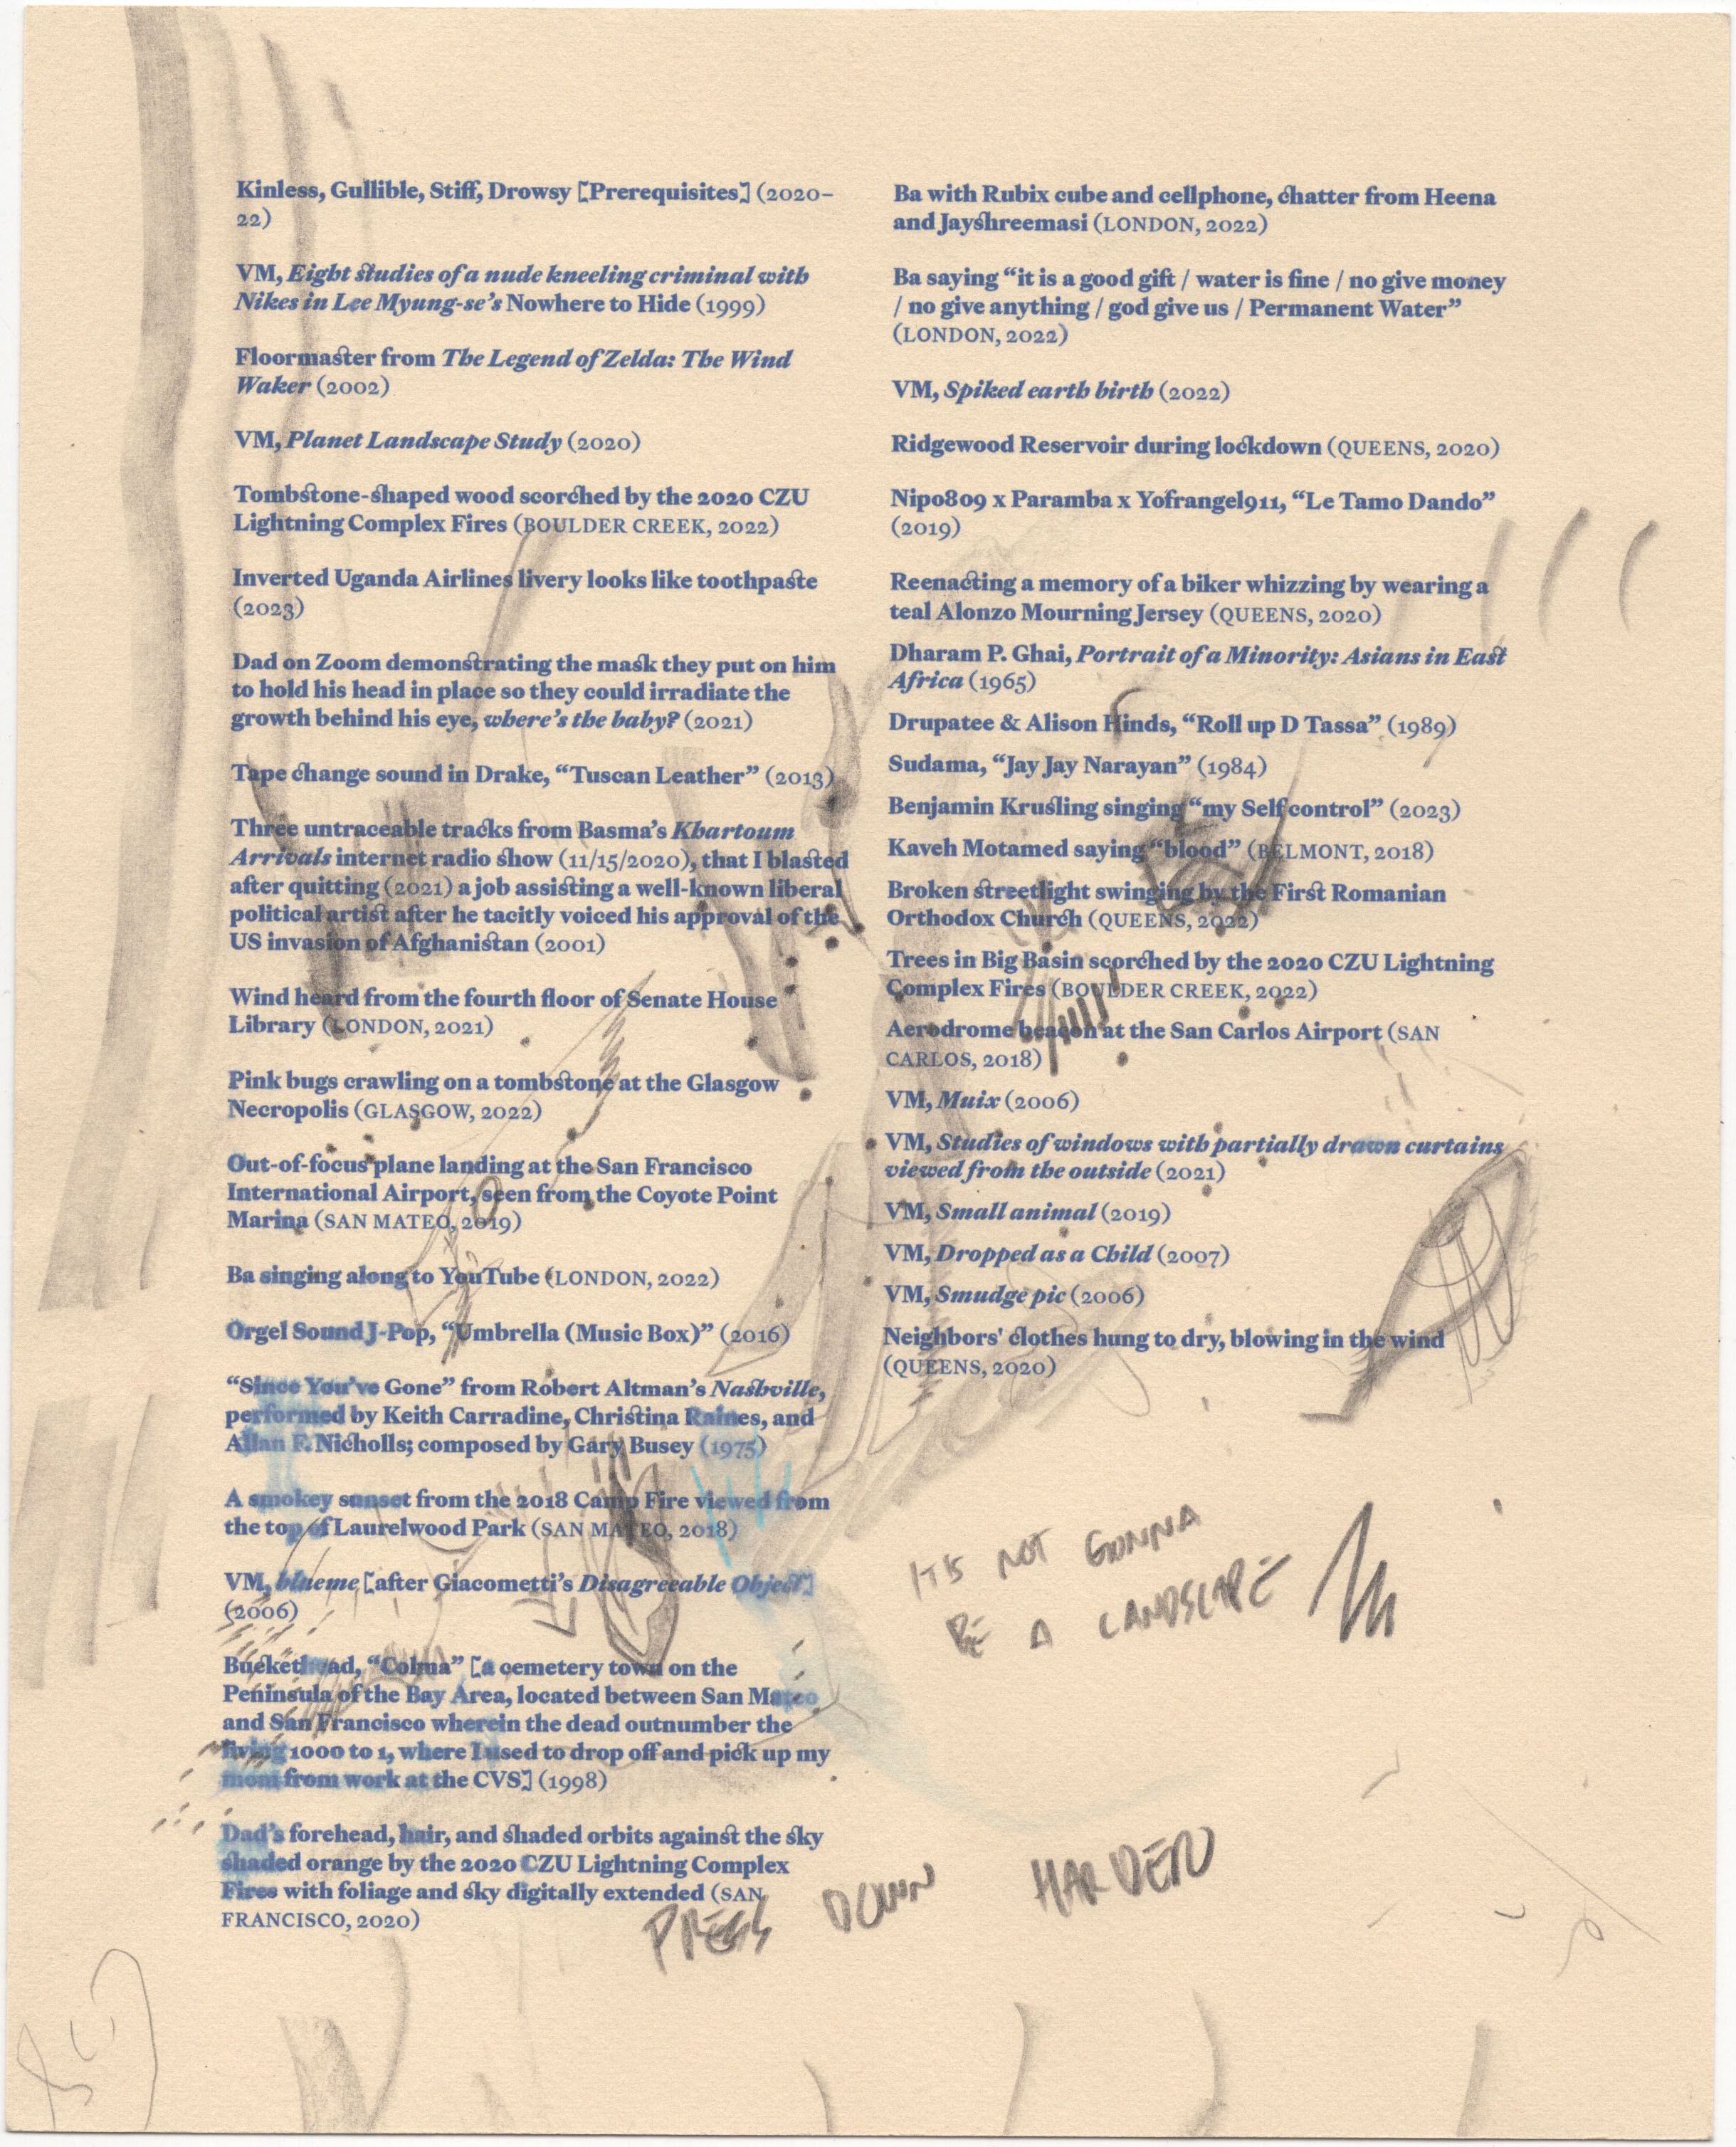 Kinless, Gullible, Stiff, Drowsy [Prerequisites] (2020–
22)
VM, Eight studies of a nude kneeling criminal with
Nikes in Lee Myung-se's Nowhere to Hide (1999)
Floormaster from The Legend of Zelda: The Wind
Waker (2002)
VM, Planet Landscape Study (2020)
Tombstone-shaped wood scorched by the 2020 CZU
Lightning Complex Fires (BOULDER CREEK, 2022)
Inverted Uganda Airlines livery looks like toothpaste
(2023)
Dad on Zoom demonstrating the mask they put on him
to hold his head in place so they could irradiate the
growth behind his eye, where's the baby? (2021)
Tape change sound in Drake, “Tuscan Leather” (2013)
Three untraceable tracks from Basma's Khartoum
Arrivals internet radio show (11/15/2020), that I blasted
after quitting (2021) a job assisting a well-known liberal
political artist after he tacitly voiced his approval of the
US invasion of Afghanistan (2001)
Wind heard from the fourth floor of Senate House
Library (LONDON, 2021)
Pink bugs crawling on a tombstone at the Glasgow
Necropolis (GLASGOW, 2022)
Out-of-focus plane landing at the San Francisco
International Airport, seen from the Coyote Point
Marina (SAN MATEO, 2019)
Ba singing along to YouTube (LONDON, 2022)
Orgel Sound J-Pop, “Umbrella (Music Box)” (2016)
“Since You've Gone” from Robert Altman's Nashville,
performed by Keith Carradine, Christina Raines, and
Allan F. Nicholls; composed by Gary Busey (1975)
A smokey sunset from the 2018 Camp Fire viewed from
the top of Laurelwood Park (SAN MATEO, 2018)
VM, blueme [after Giacometti's Disagreeable Object]
(2006)
Buckethead, “Colma” [a cemetery town on the
Peninsula of the Bay Area, located between San Mateo
and San Francisco wherein the dead outnumber the
living 1000 to 1, where I used to drop off and pick up my
mom from work at the CVS] (1998)
Dad's forehead, hair, and shaded orbits against the sky
shaded orange by the 2020 CZU Lightning Complex
Fires with foliage and sky digitally extended (SAN
FRANCISCO, 2020)
Ba with Rubix cube and cellphone, chatter from Heena
and Jayshreemasi (LONDON, 2022)
Ba saying “it is a good gift / water is fine / no give money
/ no give anything / god give us / Permanent Water”
(LONDON, 2022)
VM, Spiked earth birth (2022)
Ridgewood Reservoir during lockdown (QUEENS, 2020)
Nipo809 x Paramba x Yofrangel911, “Le Tamo Dando”
(2019)
Reenacting a memory of a biker whizzing by wearing a
teal Alonzo Mourning Jersey (QUEENS, 2020)
Dharam P. Ghai, Portrait of a Minority: Asians in East
Africa (1965)
Drupatee & Alison Hinds, “Roll up D Tassa” (1989)
Sudama, “Jay Jay Narayan” (1984)
Benjamin Krusling singing “my Self control” (2023)
Kaveh Motamed saying “blood” (BELMONT, 2018)
Broken streetlight swinging by the First Romanian
Orthodox Church (QUEENS, 2022)
Trees in Big Basin scorched by the 2020 CZU Lightning
Complex Fires (BOULDER CREEK, 2022)
Aerodrome beacon at the San Carlos Airport (SAN
CARLOS, 2018)
VM, Muix (2006)
VM, Studies of windows with partially drawn curtains
viewed from the outside (2021)
VM, Small animal (2019)
VM, Dropped as a Child (2007)
VM, Smudge pic (2006)
Neighbors' clothes hung to dry, blowing in the wind
(QUEENS, 2020)
ITS NOT GONNA
BE A LANDSCAPE
PRESS DOWN HARDER